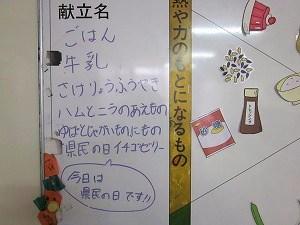 献立名
ごはん
牛乳
さけりょうふうやき
ハムとニラのあえもの
ゆばとじゃがいものにもの
県民の日イチゴゼリー
今日は
県民の日です!!
熱や力のもとになるもの